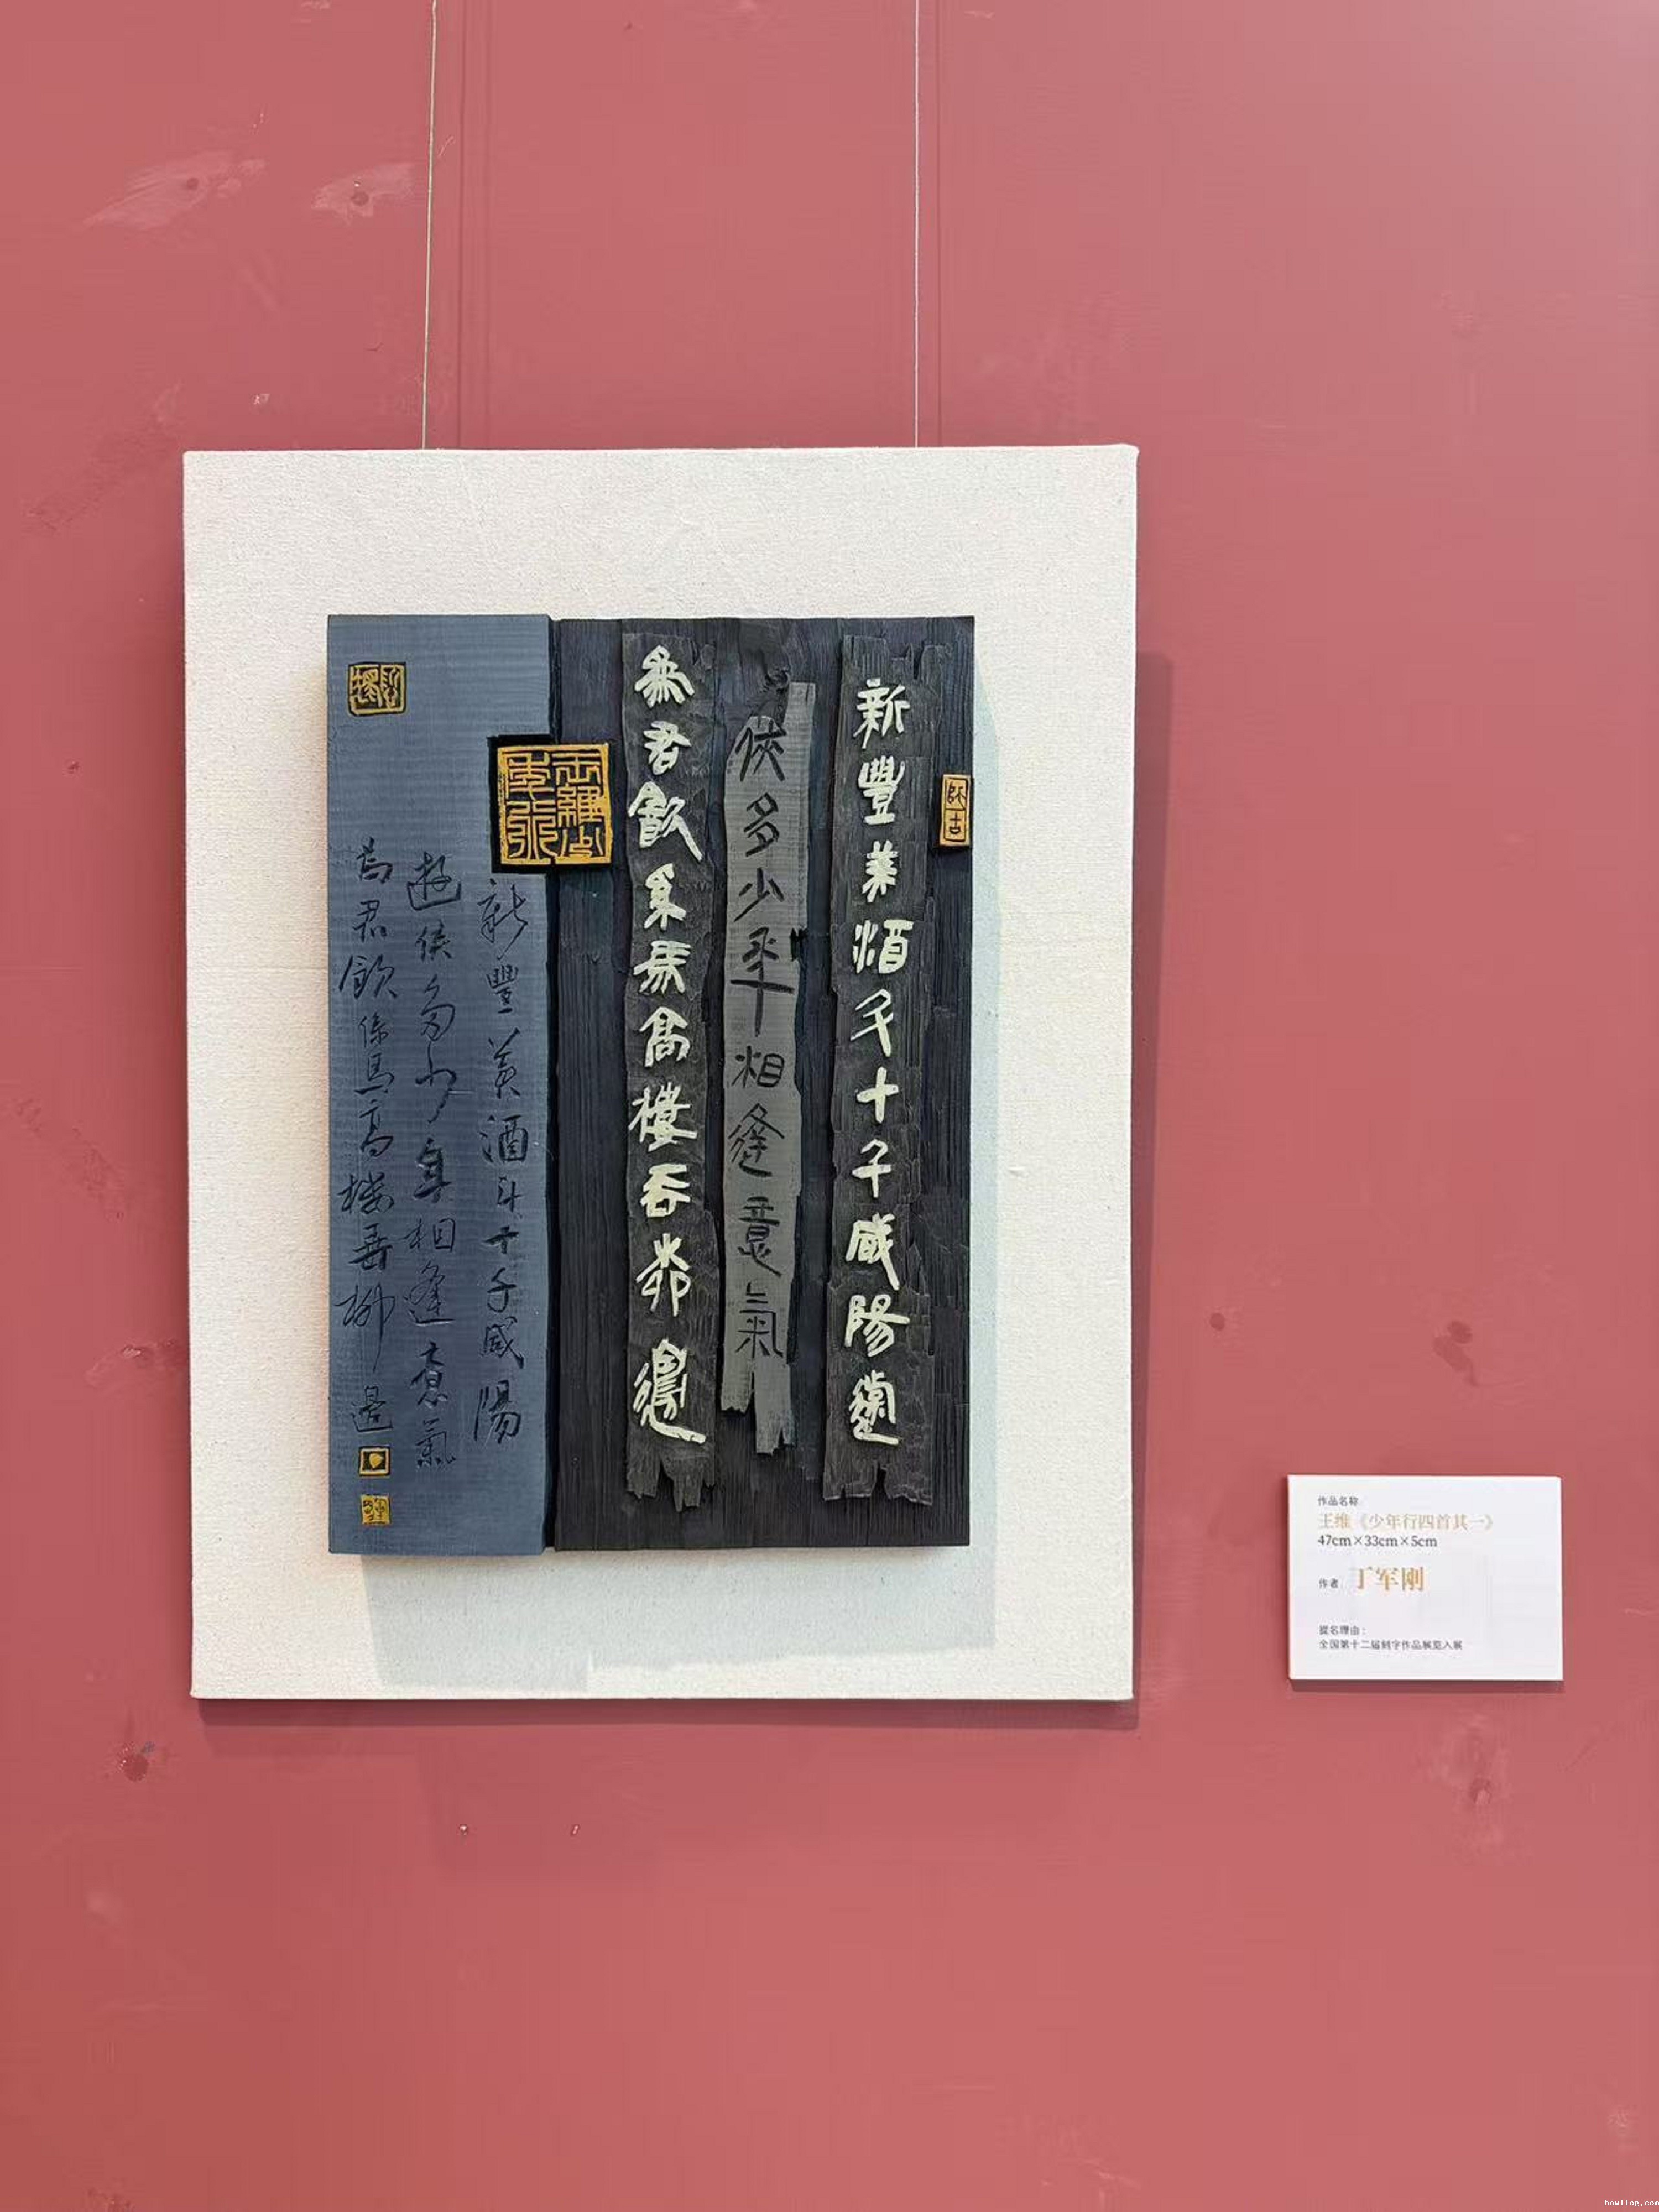 師古
新豐美酒斗十千咸陽遊
俠多少年相逢意氣
為君飲系馬高樓垂柳邊
王維少年行
新豐美酒斗十千咸陽
遊俠多少年相逢意氣
為君飲係馬高樓垂柳邊
作品名称:
王维《少年行四首其一》
47cm×33cm×5cm
作者: 丁军刚
提名理由：
全国第十二届刻字作品展览入展
howllog.com